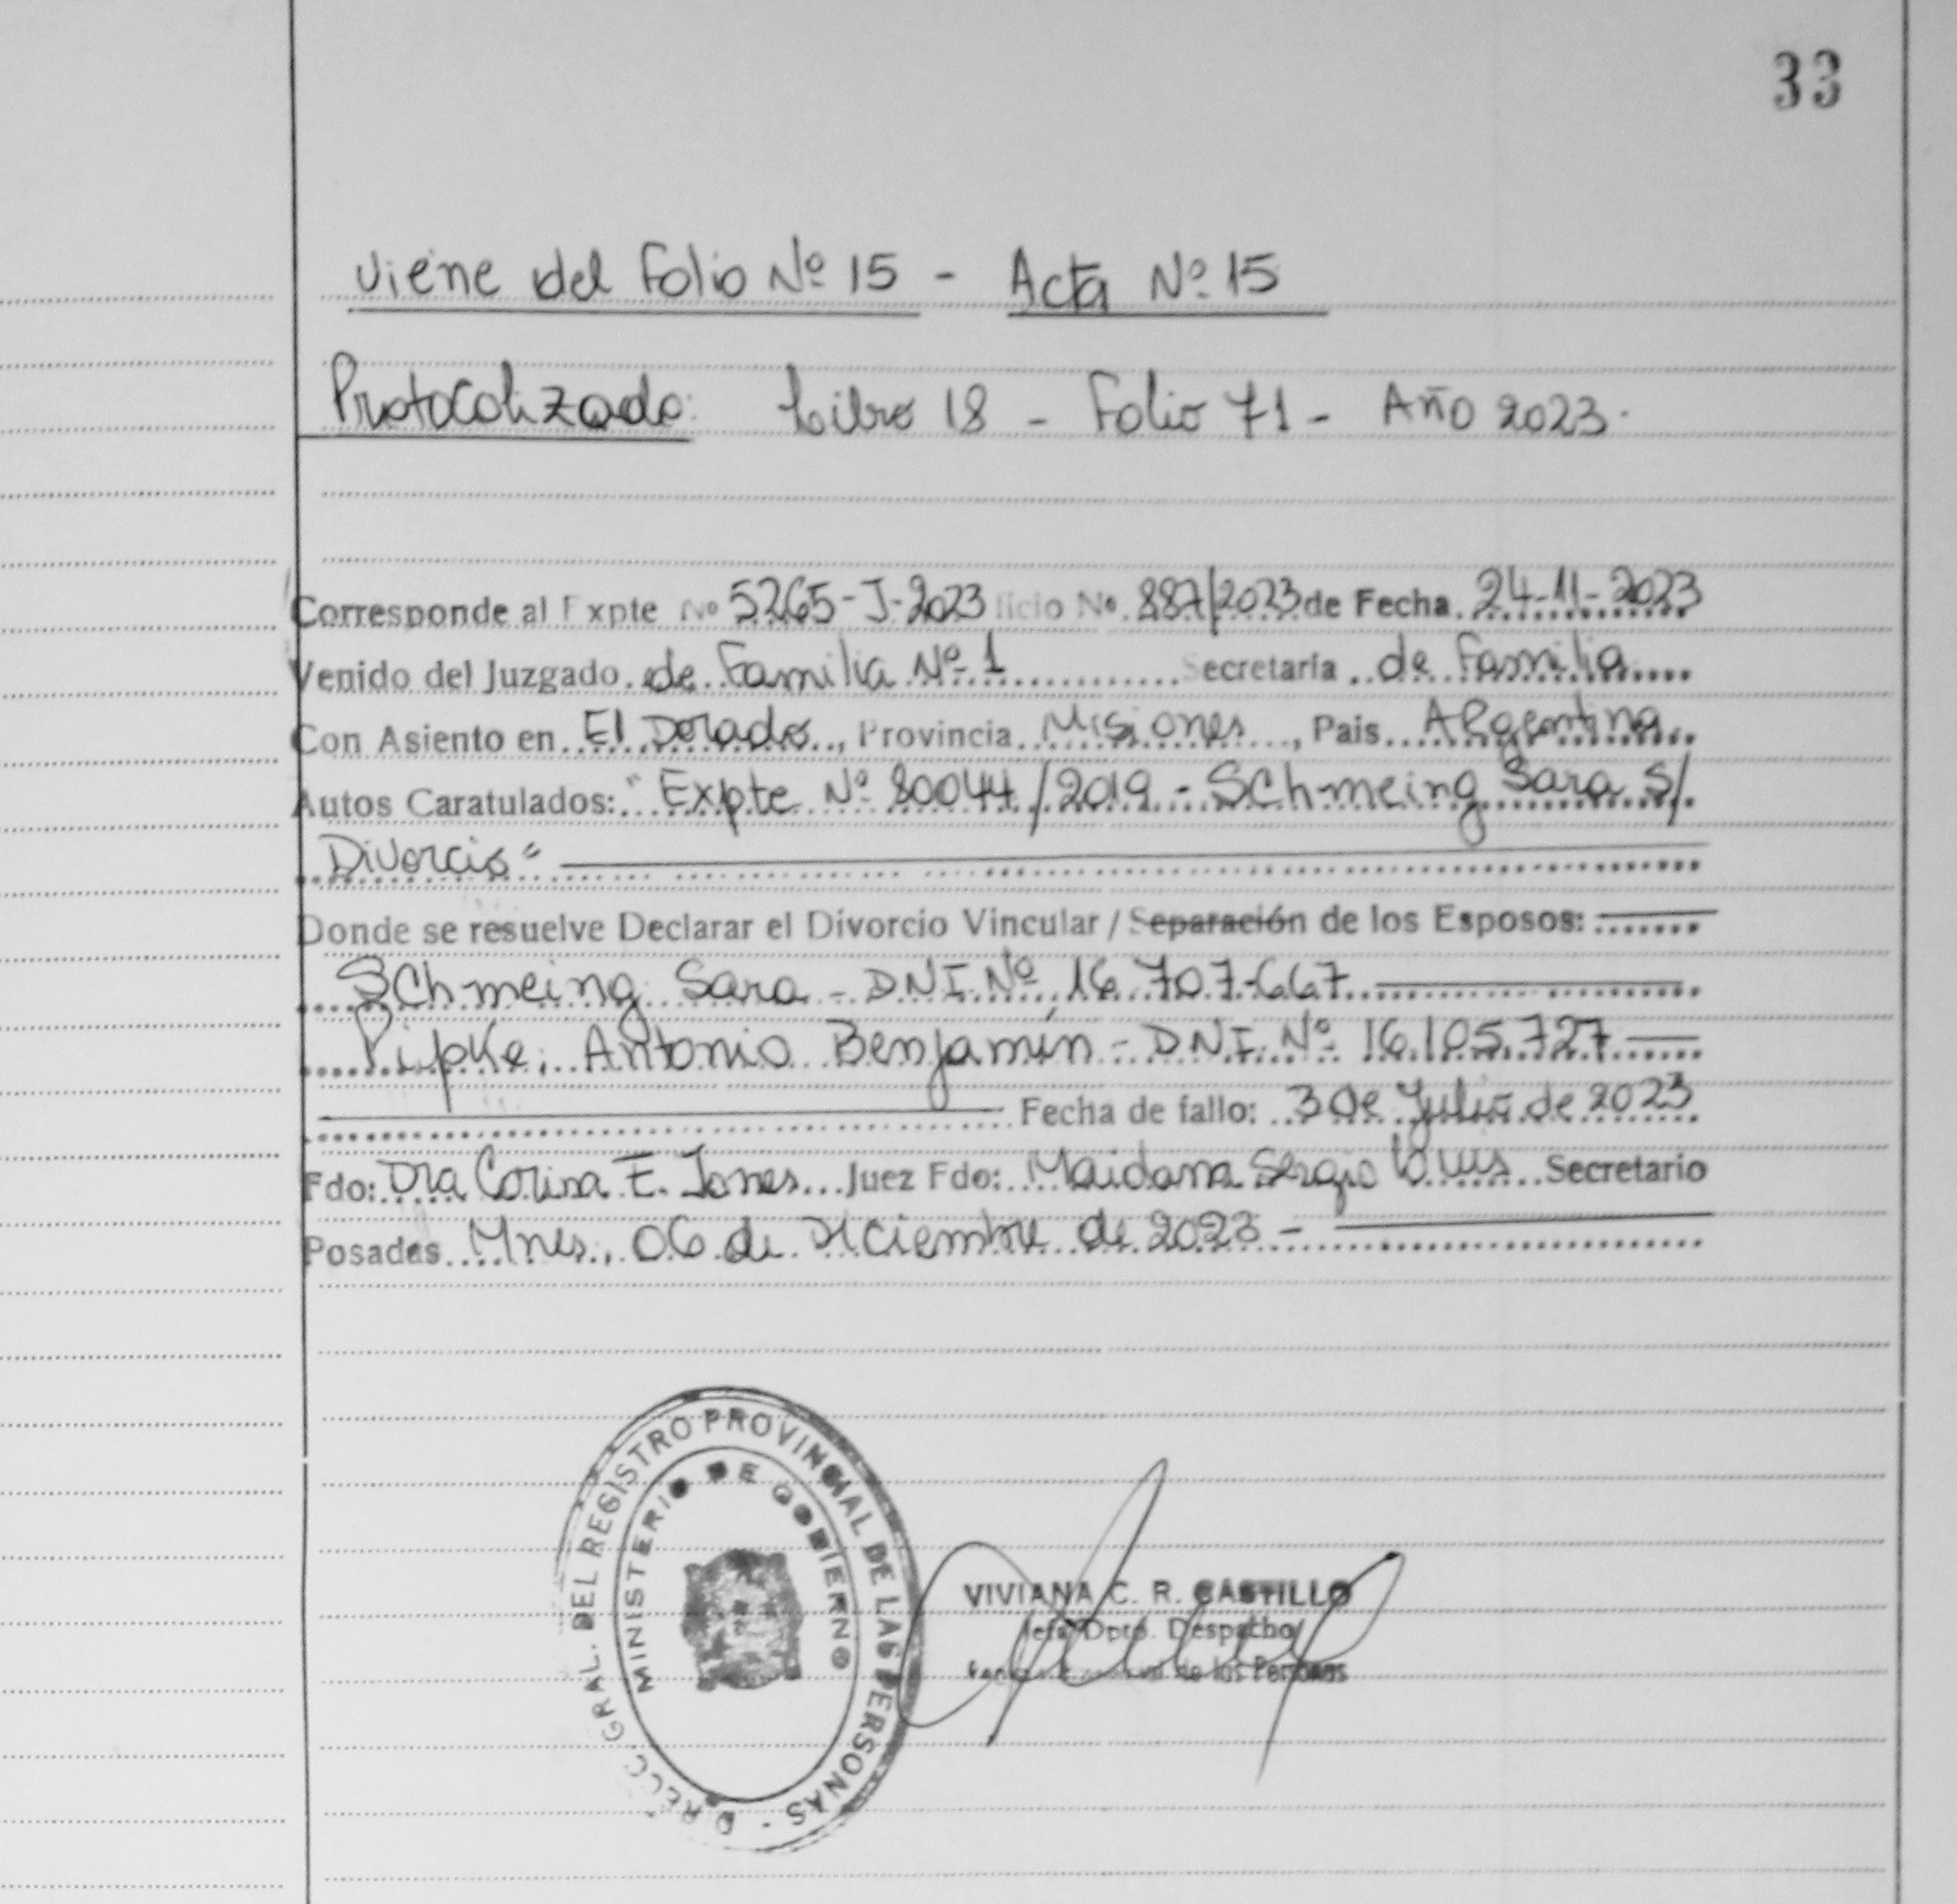 33
Viene del Folio Nº 15 - Acta Nº 15
Protocolizado: Libro 18 - Folio 71 - Año 2023.
Corresponde al Expte Nº 5265-J-2023 ficio Nº 887/2023 de Fecha 24-11-2023
Venido del Juzgado de Familia Nº 1 Secretaría de Familia
Con Asiento en El Dorado, Provincia Misiones, Pais Argentina
Autos Caratulados: "Expte Nº 80044/2019 - SChmeing Sara S/
Divorcio"
Donde se resuelve Declarar el Divorcio Vincular / Separación de los Esposos:
SChmeing Sara - DNI. Nº 16.707.667
Pipke, Antonio Benjamín - DNI. Nº 16.105.727
Fecha de fallo: 3 de Julio de 2023
Fdo: Dra Corina E. Jones Juez Fdo: Maidana Sergio Secretario
Posadas Mnes, 06 de Diciembre de 2023 -
DIRECC. GRAL. DEL REGISTRO PROVINCIAL DE LAS PERSONAS -
MINISTERIO DE GOBIERNO
VIVIANA C. R. CASTILLO
Jefa Dpto. Despacho
de las Personas